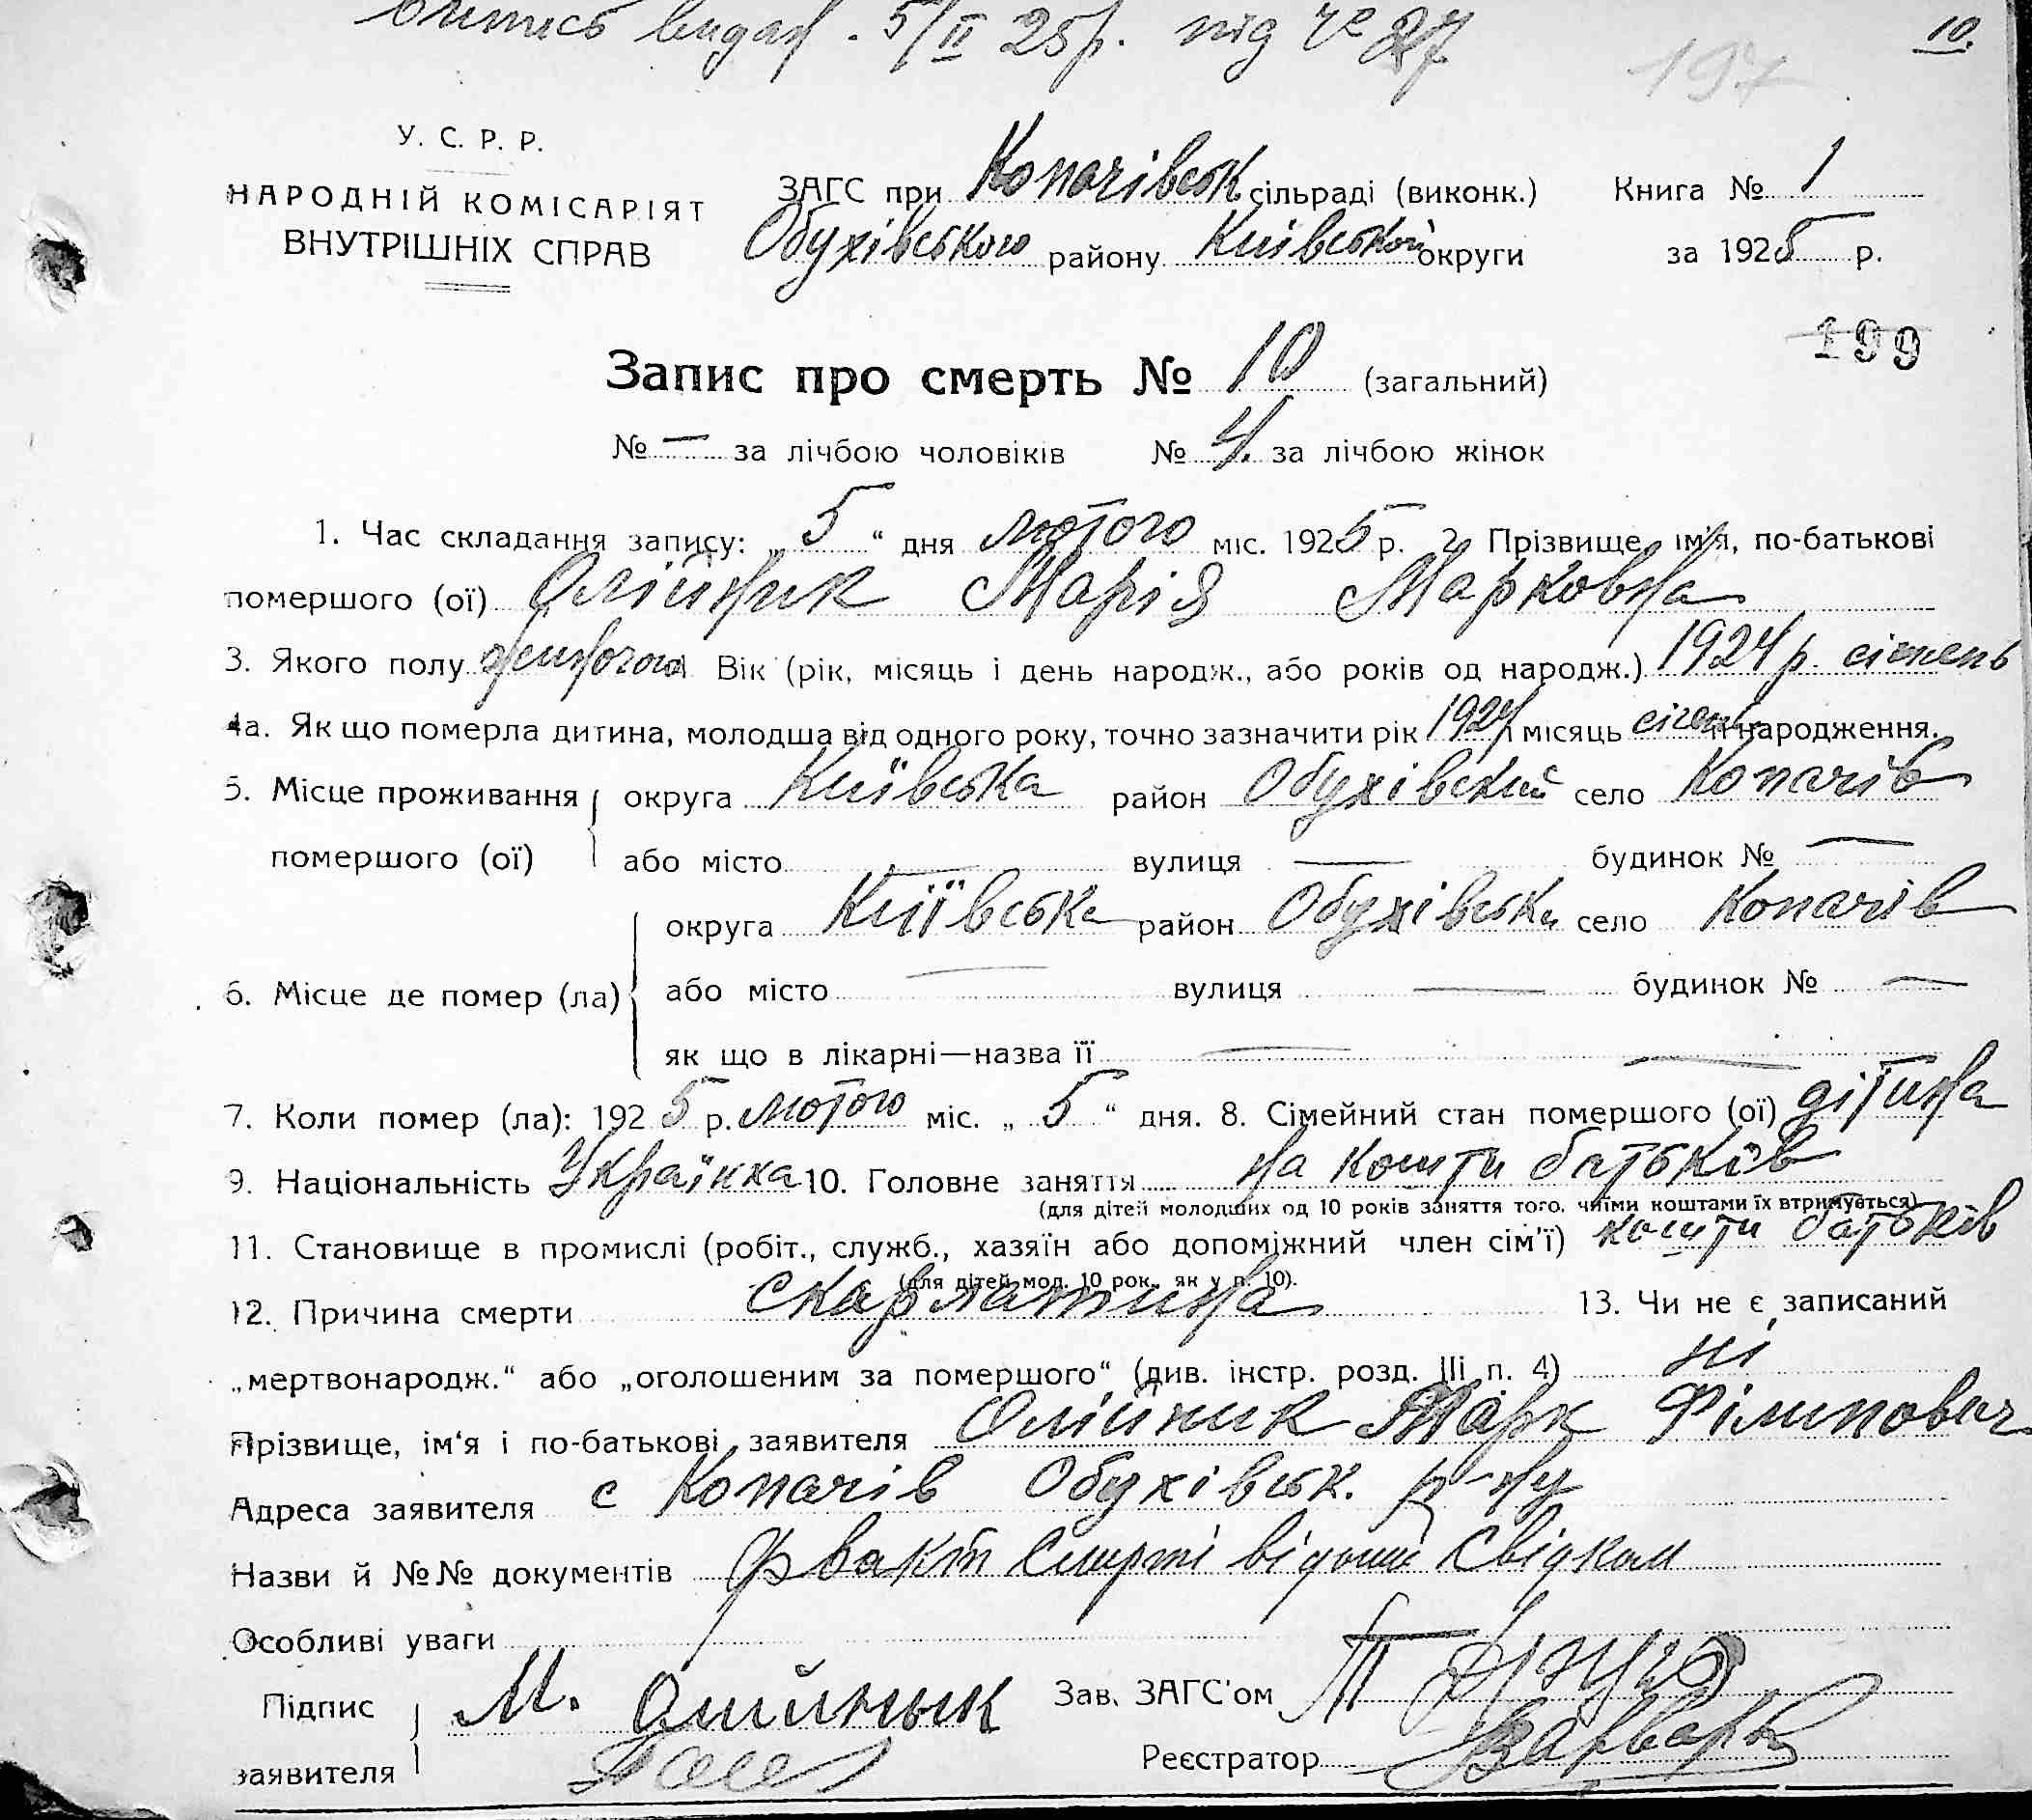 Випись видан. 5/II 25р. під № 27
10.
197
У. С. Р. Р.
НАРОДНІЙ КОМІСАРІЯТ
ВНУТРІШНІХ СПРАВ
ЗАГС при Копачівськ сільраді (виконк.) Книга № 1
Обухівського району Київської округи за 1925 р.
199
Запис про смерть № 10 (загальний)
№ — за лічбою чоловіків № 4. за лічбою жінок
1. Час складання запису: „ 5 “ дня лютого міс. 1925 р. 2. Прізвище, ім'я, по-батькові
помершого (ої) Олійник Марія Марковна
3. Якого полу Вік (рік, місяць і день народж., або років од народж.) 1924 р. січень
4а. Як що померла дитина, молодша від одного року, точно зазначити рік 1924 і місяць січень народження.
5. Місце проживання округа Київська район Обухівський село Копачів
помершого (ої) або місто — вулиця — будинок № —
округа Київська район Обухівська село Копачів
6. Місце де помер (ла) або місто — вулиця — будинок № —
як що в лікарні—назва її — —
7. Коли помер (ла): 1925 р. лютого міс. „ 5 “ дня. 8. Сімейний стан помершого (ої) дітина
9. Національність Українка 10. Головне заняття на кошти батьків
(для дітей молодших од 10 років заняття того, чиїми коштами їх втримується)
11. Становище в промислі (робіт., служб., хазяїн або допоміжний член сім'ї) кошти батьків
(для дітей мол. 10 рок., як у п. 10).
12. Причина смерти скарлатина 13. Чи не є записаний
„мертвонародж.“ або „оголошеним за помершого“ (див. інстр. розд. III п. 4) ні
Прізвище, ім'я і по-батькові заявителя Олійник Марк Філипович
Адреса заявителя с Копачів Обухівськ. р-ну
Назви й №№ документів Фвакт смерті відомий свідкам
Особливі уваги
Підпис заявителя М. Олийнык
Зав. ЗАГС'ом
Реєстратор